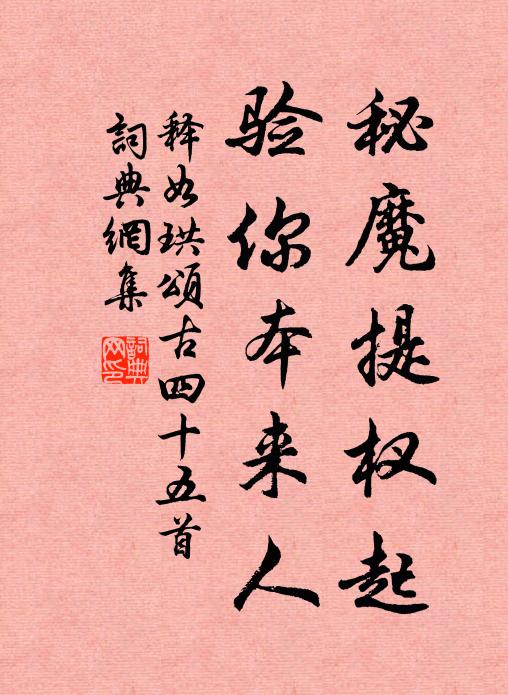 秘魔提杈起
验你本来人
释如珙颂古四十五首
詞典網集
詞典網印